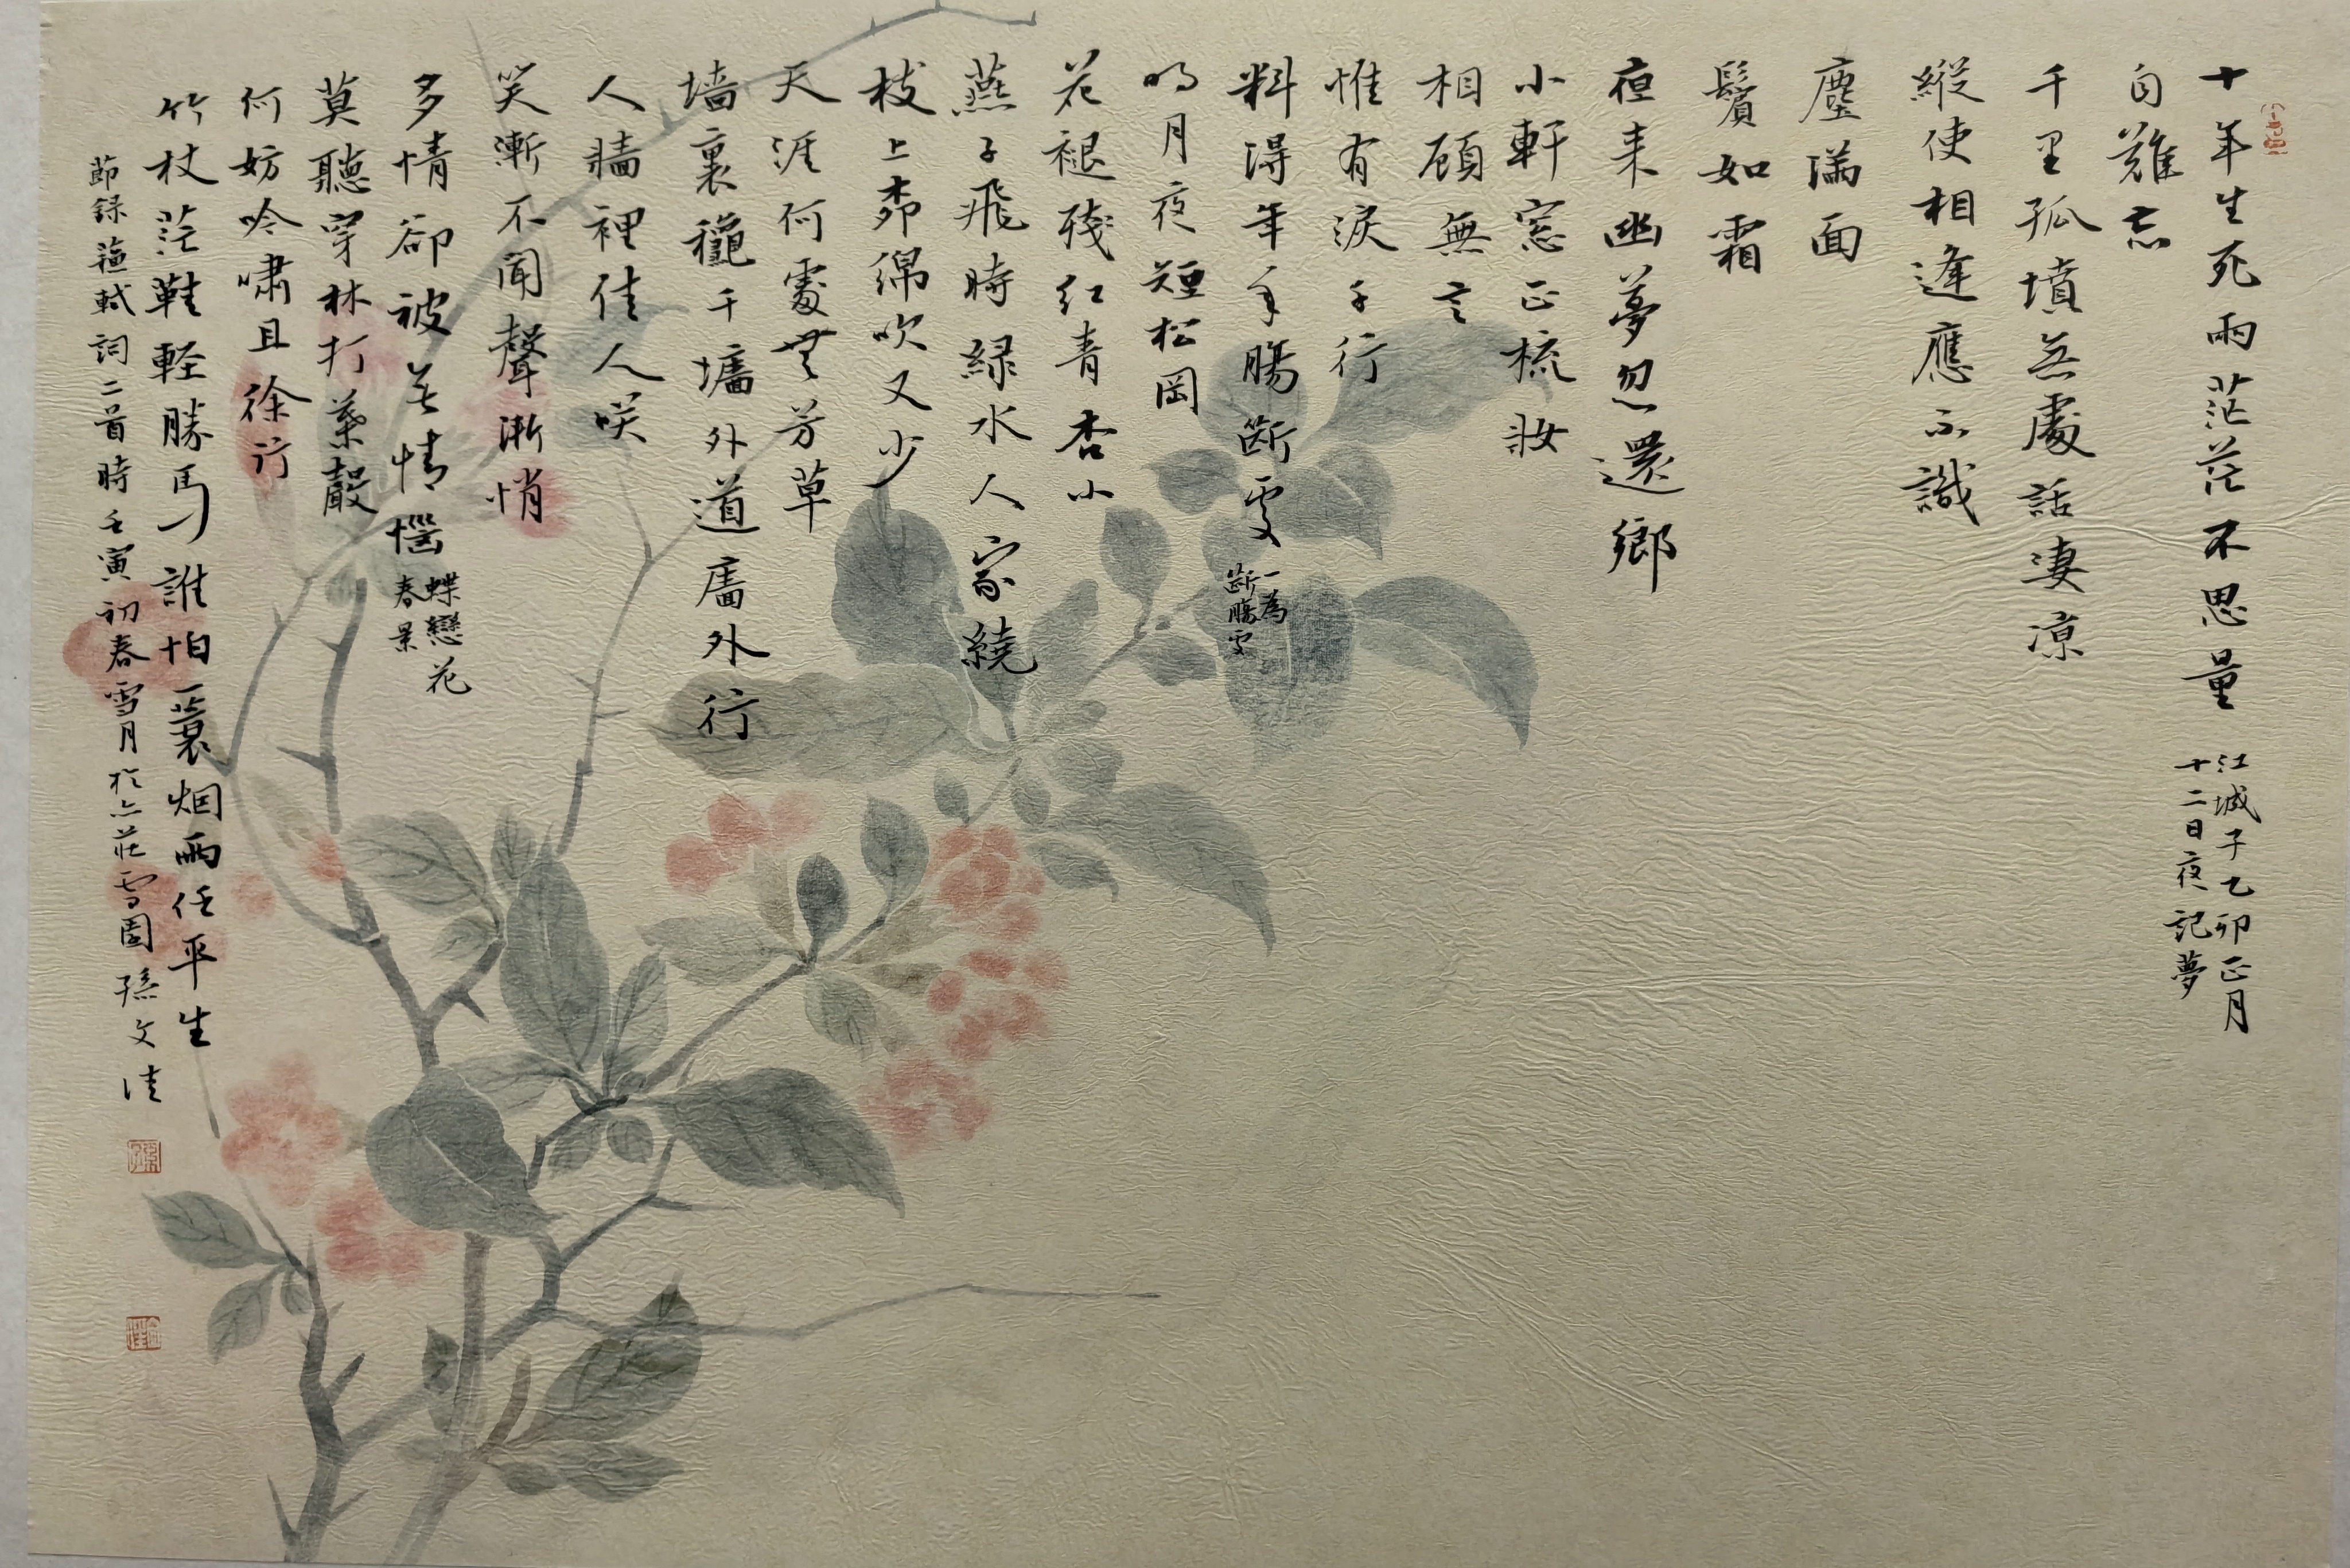 十年生死兩茫茫不思量
江城子乙卯正月
十二日夜記夢
自難忘
千里孤墳無處話凄涼
縱使相逢應不識
塵滿面
鬢如霜
夜来幽夢忽還鄉
小軒窓正梳妝
相顧無言
惟有淚千行
料得年年腸斷處
一為
斷腸處
明月夜短松岡
花褪殘红青杏小
燕子飛時緑水人家繞
枝上柳綿吹又少
天涯何處無芳草
墙裏鞦千墻外道牆外行
人牆裡佳人咲
笑漸不聞聲漸悄
多情卻被無情惱
蝶戀花
春景
莫聽穿林打葉聲
何妨吟嘯且徐行
竹杖茫鞋輕勝馬誰怕一蓑烟雨任平生
節録蘇軾詞二首時壬寅初春雪月於六莊雪園孫文佳